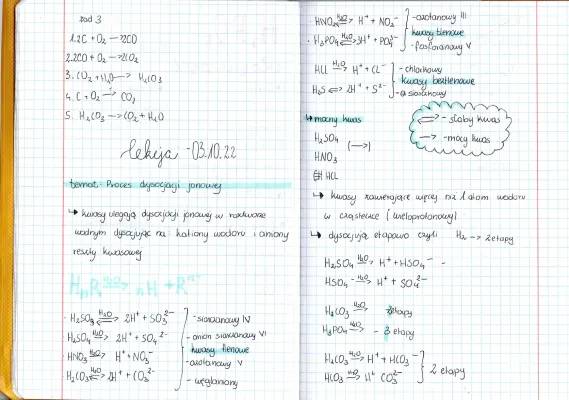 zad 3
1. 2C + O₂ → 2CO
2. 2CO + O₂ → 2CO₂
3. CO₂ + H₂O → H₂CO₃
4. C + O₂ → CO₂
5. H₂CO₃ → CO₂ + H₂O
lekcja - 03.10.22
temat: Proces dysocjacji jonowej
↳ kwasy ulegają dysocjacji jonowej w roztworze
wodnym dysocjując na kationy wodoru i aniony
reszty kwasowej
H₂SO₃ ⇄ H₂O 2H⁺ + SO₃²⁻ - siarczanowy IV
H₂SO₄ → H₂O 2H⁺ + SO₄²⁻ - anion siarczanowy VI
kwasy tlenowe
HNO₃ → H₂O H⁺ + NO₃⁻ - azotanowy V
H₂CO₃ ⇄ H₂O 2H⁺ + CO₃²⁻ - węglanowy
HNO₂ ⇄ H₂O H⁺ + NO₂⁻ - azotanowy III
kwasy tlenowe
H₃PO₄ ⇄ H₂O 3H⁺ + PO₄³⁻ - fosforanowy V
HCl → H₂O H⁺ + Cl⁻ - chlorkowy
kwasy beztlenowe
H₂S ⇄ 2H⁺ + S²⁻ - siarczkowy
↳ mocny kwas
H₂SO₄
HNO₃ (→)
HCL
⇄ - słaby kwas
→ - mocny kwas
↳ kwasy zawierające więcej niż 1 atom wodoru
w cząsteczce (wieloprotonowy)
↳ dysocjują etapowo czyli H₂ → 2 etapy
H₂SO₄ → H₂O H⁺ + HSO₄⁻ -
HSO₄ → H₂O H⁺ + SO₄²⁻
H₂CO₃ → H₂O etapy
H₃PO₄ → H₂O - 3 etapy
H₂CO₃ → H₂O H⁺ + HCO₃⁻
HCO₃ → H₂O H⁺ CO₃²⁻
2 etapy